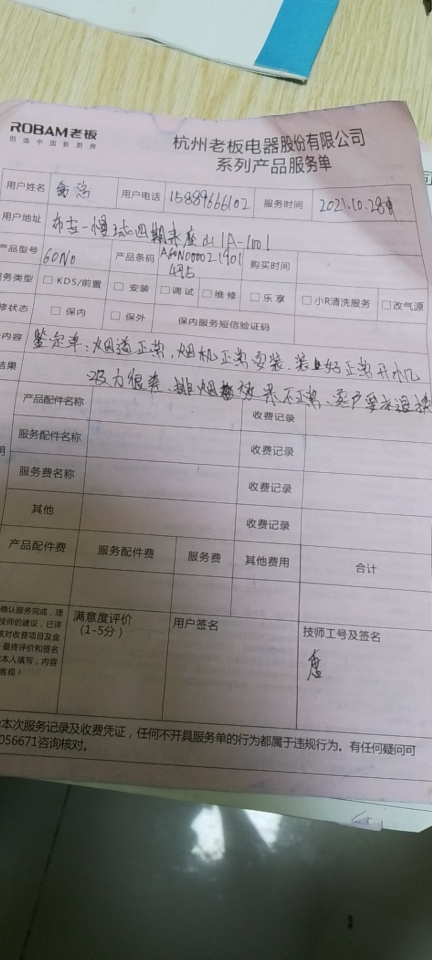 ROBAM老板
创造中国新厨房
杭州老板电器股份有限公司
系列产品服务单
用户姓名 用户电话 15889666102 服务时间 2021.10.28
用户地址 布吉一慢城四期 山1A-1001
产品型号 60N0 产品条码 A60N00021901 购买时间
495
服务类型 □KDS/前置 □安装 □调试 □维修 □乐享 □小R清洗服务 □改气源
修状态 □保内 □保外 保内服务短信验证码
内容 鉴定单:烟道正常,烟机正常安装、装上好正常开机
结果 吸力很差、排烟效果不正常、客户要求退换
产品配件名称 收费记录
服务配件名称 收费记录
用
服务费名称 收费记录
其他 收费记录
产品配件费 服务配件费 服务费 其他费用 合计
确认服务完成,理
技师的建议,已详
核对收费项目及金
最终评价和签名
本人填写,内容
客观!
满意度评价
(1-5分)
用户签名
技师工号及签名
本次服务记录及收费凭证,任何不开具服务单的行为都属于违规行为。有任何疑问可
056671咨询核对。